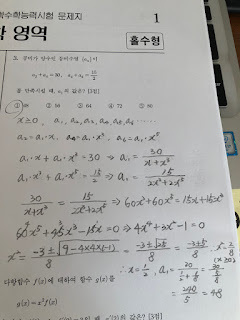 학수학능력시험 문제지
학 영역
1
홀수형
모든 공비가 양수인 등비수열 {aₙ}이
a₂+a₄=30, a₄+a₆=15/2
를 만족시킬 때, a₁의 값은? [3점]
① 48 ② 56 ③ 64 ④ 72 ⑤ 80
x≥0, a₁, a₂, a₃, a₄, a₅, a₆ ......
a₂=a₁·x, a₄=a₁·x³, a₆=a₁·x⁵
a₁·x+a₁·x³=30 → a₁=30/(x+x³)
a₁·x³+a₁·x⁵=15/2 → a₁=15/(2x³+2x⁵)
30/(x+x³)=15/(2x³+2x⁵) ⇒ 60x³+60x⁵=15x+15x³
60x⁵+45x³-15x=0 → 4x⁴+3x²-1=0
x²=(-3±√(9-4×4×(-1)))/8=(-3±√25)/8=(-3±5)/8 x²=2/8
(x≥0)
∴x=1/2, a₁=30/(1/2+1/8)=30/(5/8)
=240/5=48
다항함수 f(x)에 대하여 함수 g(x)를
g(x)=x²f(x)
값은? [3점]